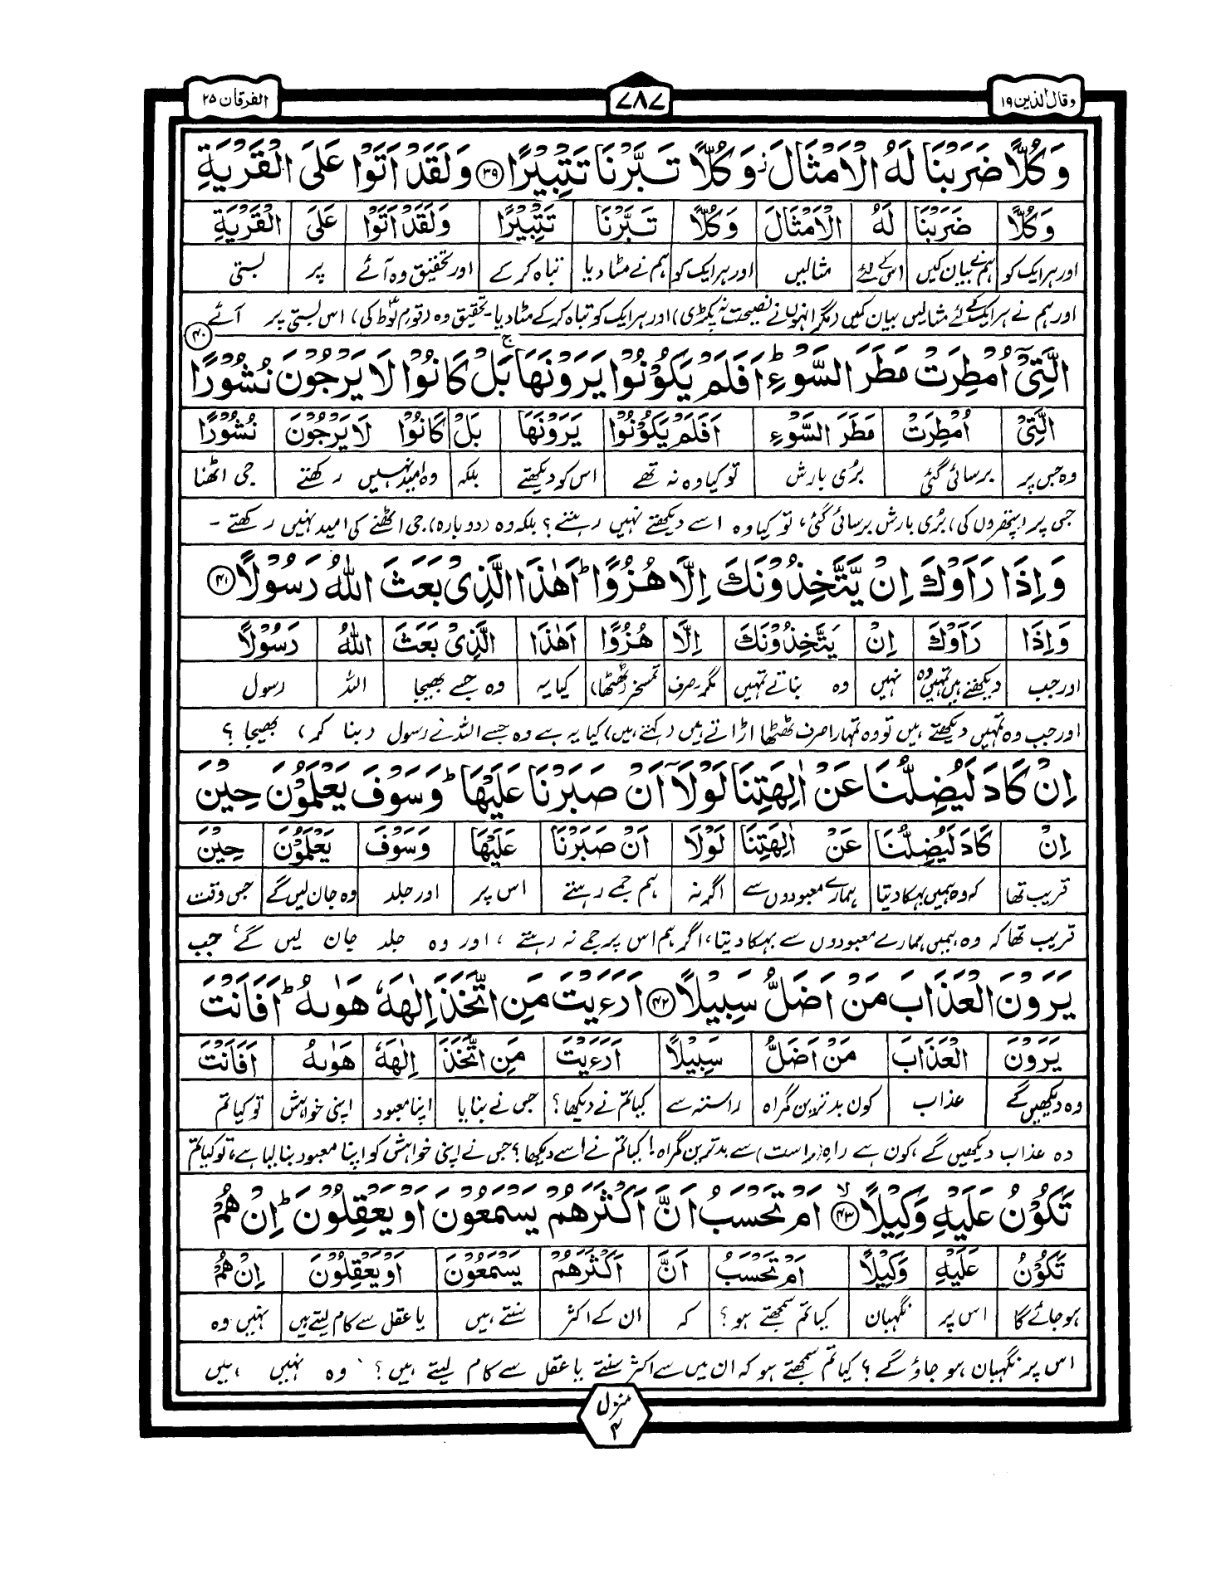 وقال الذین ۱۹
۷۸۷
الفرقان ۲۵
وَكُلًّا ضَرَبْنَا لَهُ الْاَمْثَالَ ز وَكُلًّا تَبَّرْنَا تَتْبِيْرًا ۳۹ وَلَقَدْ اَتَوْا عَلَى الْقَرْيَةِ
وَكُلًّا ضَرَبْنَا لَهُ الْاَمْثَالَ وَكُلًّا تَبَّرْنَا تَتْبِيْرًا وَلَقَدْ اَتَوْا عَلَى الْقَرْيَةِ
اور ہر ایک کو ہم نے بیان کیں اس کے لئے مثالیں اور ہر ایک کو ہم نے مٹا دیا تباہ کر کے اور تحقیق وہ آئے پر بستی
اور ہم نے ہر ایک کے لئے مثالیں بیان کیں (مگر انہوں نے نصیحت نہ پکڑی) اور ہر ایک کو تباہ کر کے مٹا دیا۔ تحقیق وہ (قوم لوط کی) اس بستی پر آئے
الَّتِيْٓ اُمْطِرَتْ مَطَرَ السَّوْءِ ؕ اَفَلَمْ يَكُوْنُوْا يَرَوْنَهَا ۚ بَلْ كَانُوْا لَا يَرْجُوْنَ نُشُوْرًا ۴۰
الَّتِيْٓ اُمْطِرَتْ مَطَرَ السَّوْءِ اَفَلَمْ يَكُوْنُوْا يَرَوْنَهَا بَلْ كَانُوْا لَا يَرْجُوْنَ نُشُوْرًا
وہ جس پر برسائی گئی بری بارش تو کیا وہ نہ تھے اس کو دیکھتے بلکہ وہ امید نہیں رکھتے جی اٹھنا
جس پر (پتھروں کی) بری بارش برسائی گئی، تو کیا وہ اسے دیکھتے نہیں رہتے؟ بلکہ وہ (دوبارہ) جی اٹھنے کی امید نہیں رکھتے۔
وَاِذَا رَاَوْكَ اِنْ يَّتَّخِذُوْنَكَ اِلَّا هُزُوًا ؕ اَهٰذَا الَّذِيْ بَعَثَ اللّٰهُ رَسُوْلًا ۴۱
وَاِذَا رَاَوْكَ اِنْ يَتَّخِذُوْنَكَ اِلَّا هُزُوًا اَهٰذَا الَّذِيْ بَعَثَ اللّٰهُ رَسُوْلًا
اور جب دیکھتے ہیں تمہیں وہ نہیں وہ بناتے تمہیں مگر۔ صرف تمسخر (ٹھٹھا) کیا یہ وہ جسے بھیجا اللہ رسول
اور جب وہ تمہیں دیکھتے ہیں تو وہ تمہارا صرف ٹھٹھا اڑاتے ہیں (کہتے ہیں) کیا یہ ہے وہ جسے اللہ نے رسول (بنا کر) بھیجا؟
اِنْ كَادَ لَيُضِلُّنَا عَنْ اٰلِهَتِنَا لَوْلَآ اَنْ صَبَرْنَا عَلَيْهَا ؕ وَسَوْفَ يَعْلَمُوْنَ حِيْنَ
اِنْ كَادَ لَيُضِلُّنَا عَنْ اٰلِهَتِنَا لَوْلَا اَنْ صَبَرْنَا عَلَيْهَا وَسَوْفَ يَعْلَمُوْنَ حِيْنَ
قریب تھا کہ وہ ہمیں بہکا دیتا ہمارے معبودوں سے اگر نہ ہم جمے رہتے اس پر اور جلد وہ جان لیں گے جس وقت
قریب تھا کہ وہ ہمیں ہمارے معبودوں سے بہکا دیتا، اگر ہم اس پر جمے نہ رہتے، اور وہ جلد جان لیں گے، جب
يَرَوْنَ الْعَذَابَ مَنْ اَضَلُّ سَبِيْلًا ۴۲ اَرَءَيْتَ مَنِ اتَّخَذَ اِلٰهَهٗ هَوٰىهُ ؕ اَفَاَنْتَ
يَرَوْنَ الْعَذَابَ مَنْ اَضَلُّ سَبِيْلًا اَرَءَيْتَ مَنِ اتَّخَذَ اِلٰهَهٗ هَوٰىهُ اَفَاَنْتَ
وہ دیکھیں گے عذاب کون بدترین گمراہ راستہ سے کیا تم نے دیکھا؟ جس نے بنایا اپنا معبود اپنی خواہش تو کیا تم
وہ عذاب دیکھیں گے، کون ہے راہ (راست) سے بدترین گمراہ! کیا تم نے اسے دیکھا؟ جس نے اپنی خواہش کو اپنا معبود بنا لیا ہے، تو کیا تم
تَكُوْنُ عَلَيْهِ وَكِيْلًا ۙ ۴۳ اَمْ تَحْسَبُ اَنَّ اَكْثَرَهُمْ يَسْمَعُوْنَ اَوْ يَعْقِلُوْنَ ؕ اِنْ هُمْ
تَكُوْنُ عَلَيْهِ وَكِيْلًا اَمْ تَحْسَبُ اَنَّ اَكْثَرَهُمْ يَسْمَعُوْنَ اَوْ يَعْقِلُوْنَ اِنْ هُمْ
ہو جائے گا اس پر نگہبان کیا تم سمجھتے ہو؟ کہ ان کے اکثر سنتے ہیں یا عقل سے کام لیتے ہیں نہیں وہ
اس پر نگہبان ہو جاؤ گے؟ کیا تم سمجھتے ہو کہ ان میں سے اکثر سنتے یا عقل سے کام لیتے ہیں؟ وہ نہیں ہیں
منزل
۴